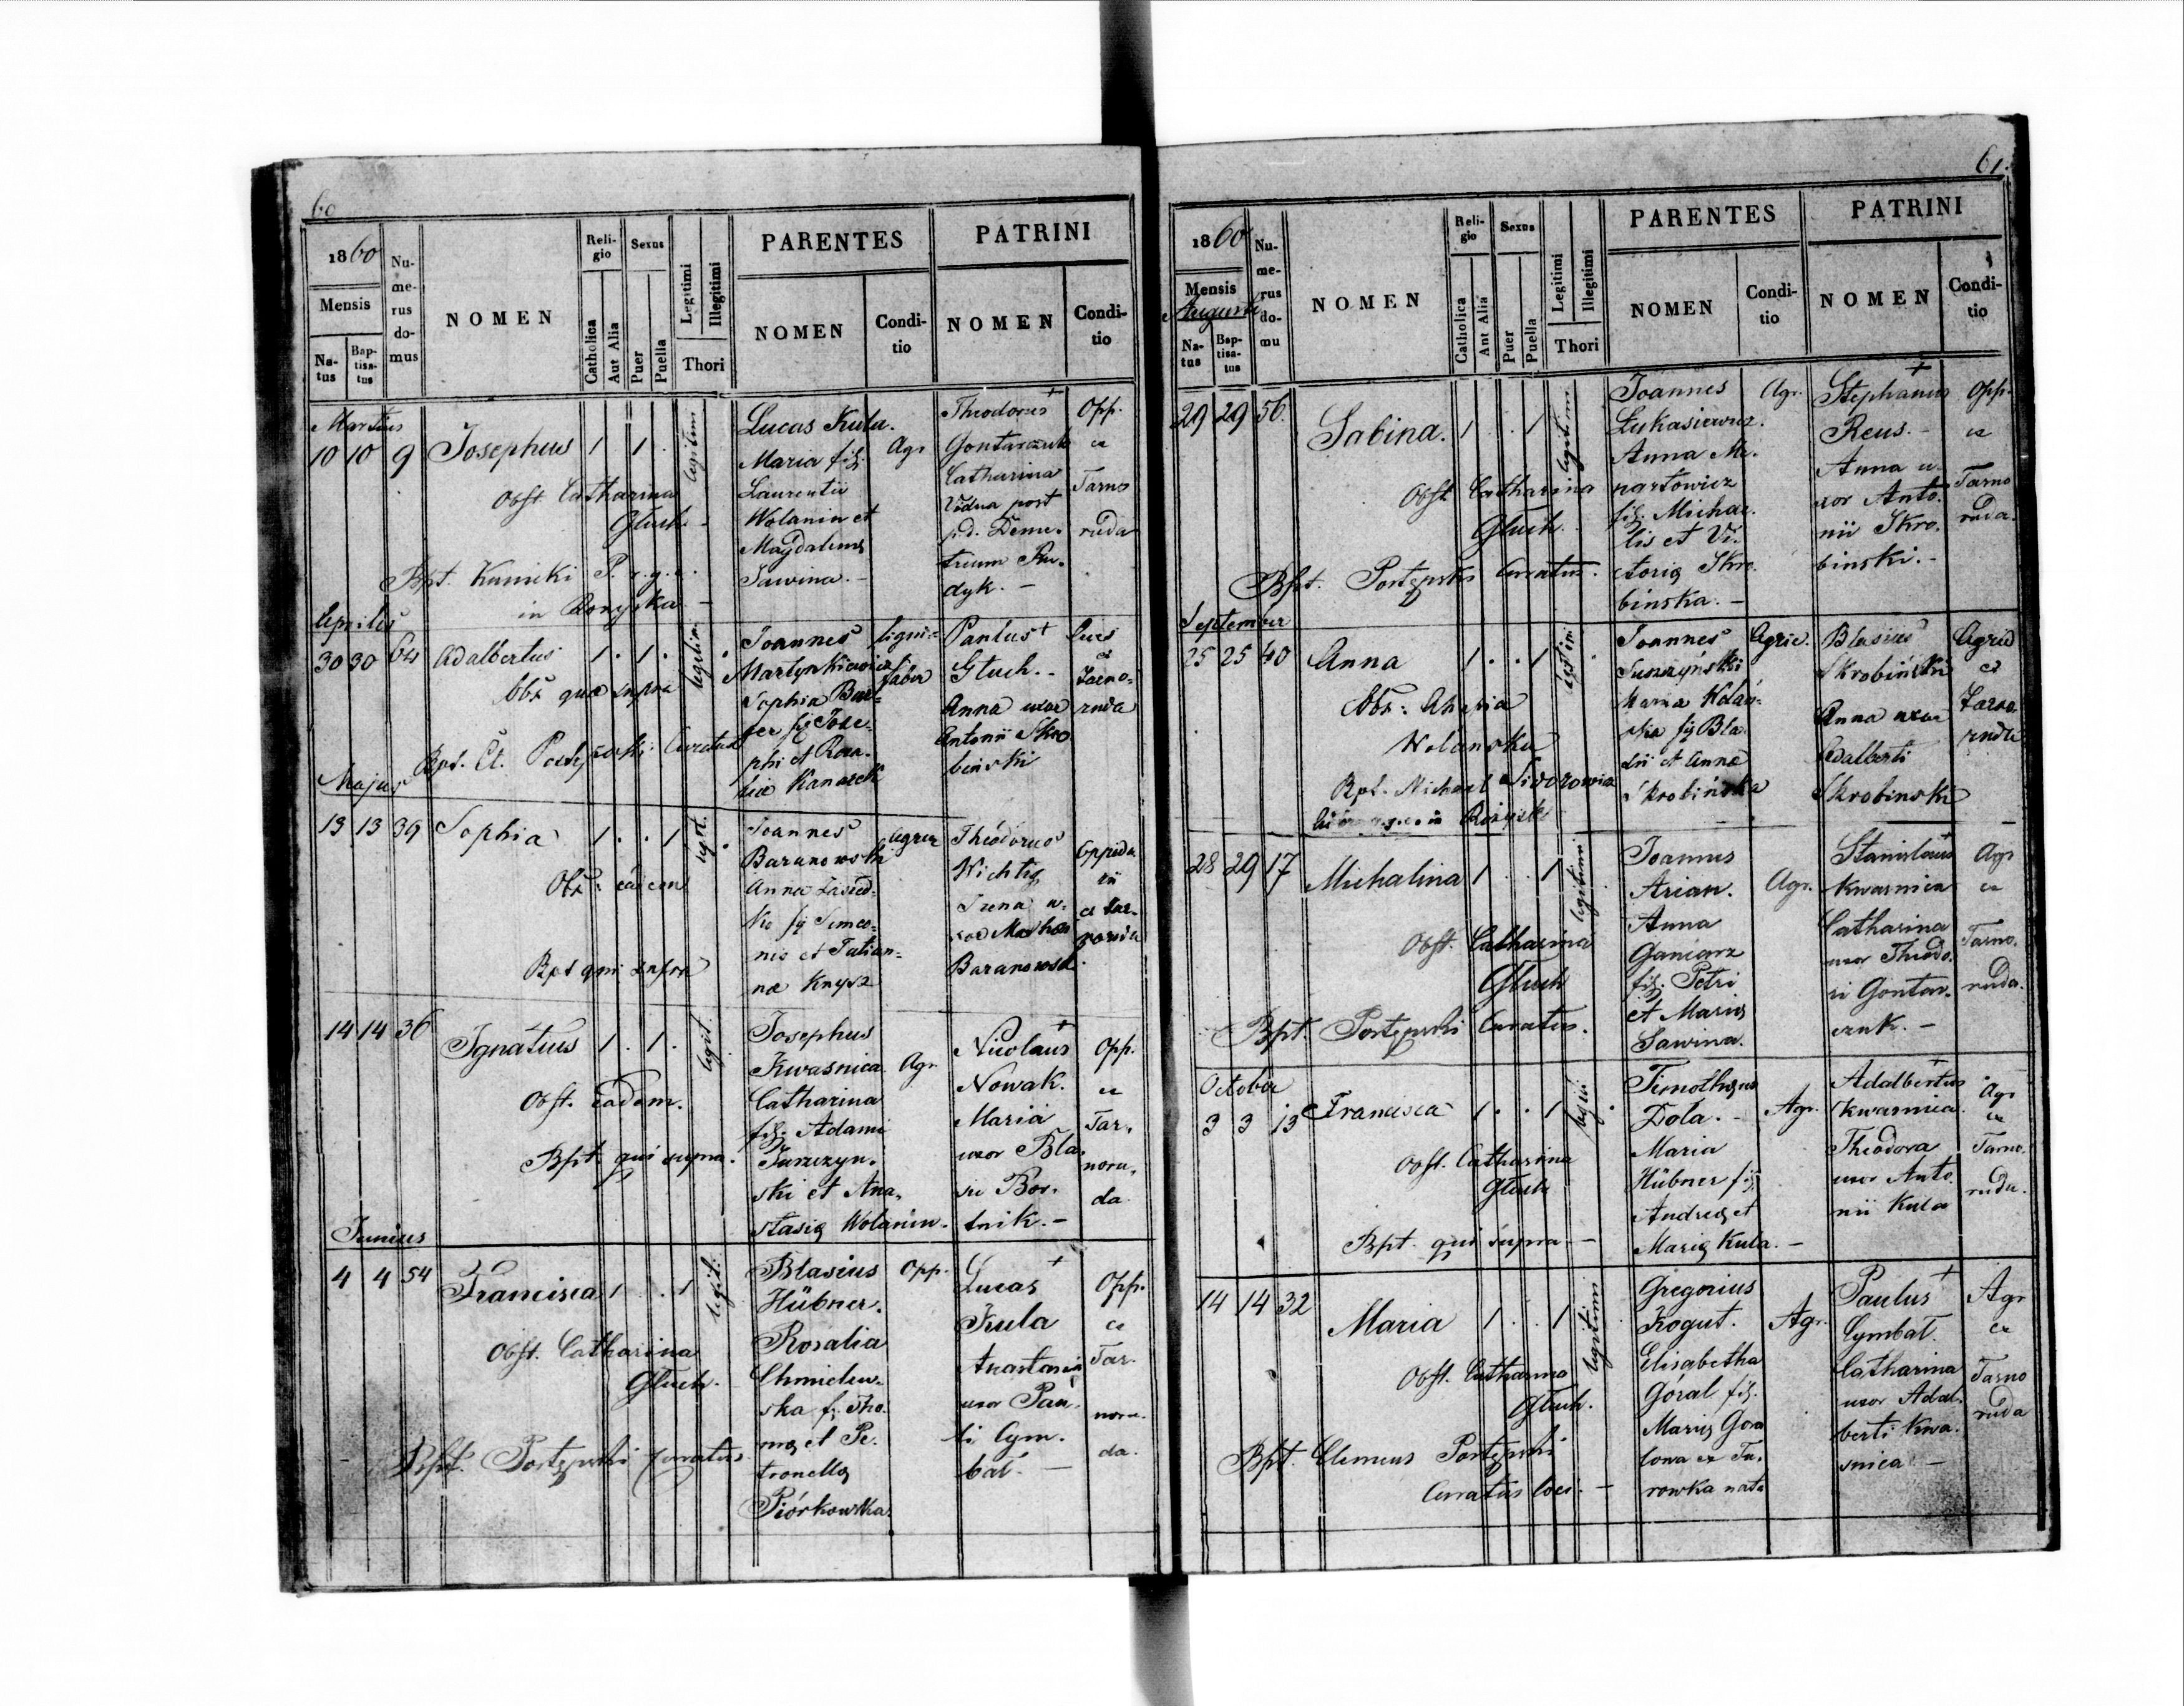 60
1860
Mensis
Na-
tus
Bap-
tisa-
tus
Nu-
me-
rus
do-
mus
NOMEN
Reli-
gio
Catholica
Aut Alia
Sexus
Puer
Puella
Legitimi
Illegitimi
Thori
PARENTES
NOMEN
Condi-
tio
PATRINI
NOMEN
Condi-
tio
Martius
10 10 9 Josephus 1 . 1 . legitim
Obst Catharina
Głuch -
Bpt. Kunicki P. r. g. c.
in Rozyska -
Lucas Kula.
Maria fil.
Laurentii
Wolanin et
Magdalenę
Sawina. -
Agr
Theodorus +
Gontarczuk
Catharina
Vidua post
p.d. Deme-
trium Ru-
dyk. -
Opp.
ex
Tarno
ruda
Aprilis
30 30 64 Adalbertus 1 . 1 . legitim.
Obs quæ supra
Bpt. Cl. Curatus
Joannes
Martynkiewicz
Sophia Bur-
fij Jose-
phi et Rosa-
liæ Kanarek
ligni-
faber
Paulus +
Głuch. -
Anna uxor
Antonii Skro
binski
ex
Tarno-
ruda
Majus
13 13 39 Sophia 1 . . 1 legit.
Obs: eadem
Bpt qui supra
Joannes
Baranowski
Anna
ko fij Simeo-
nis et Tatian-
næ Knysz
Theodorus
Wichtig
Irena u-
xor
Baranowski
Oppida
nii
ex Tar-
noruda
14 14 36 Ignatius 1 . 1 . legit.
Obst. Eadem.
Bpt. qui supra.
Josephus
Kwasnica
Catharina
fil. Adami
Suszczyn-
ski et Ana-
stasię Wolanin.
Agr
Nicolaus +
Nowak.
Maria
uxor Bla-
sii Bor-
tnik. -
Opp.
ex
Tar-
noru-
da
Junius
4 4 54 Francisca 1 . . 1 legit:
Obst. Catharina
Głuch.
Bpt. Portępski Curatus
Blasius
Hübner.
Rosalia
Chmielew-
ska f. Tho-
mę et Pe-
tronellę
Piórkowska.
Opp.
Lucas +
Kula
Anastasia
uxor Pau-
li Cym-
bał. -
Opp.
ex
Tar-
noru-
da.
61.
1860
Mensis
Augusti
Na-
tus
Bap-
tisa-
tus
Nu-
me-
rus
do-
mu
NOMEN
Reli-
gio
Catholica
Aut Alia
Sexus
Puer
Puella
Legitimi
Illegitimi
Thori
PARENTES
NOMEN
Condi-
tio
PATRINI
NOMEN
Condi-
tio
29 29 56. Sabina. 1 . . 1 legitim
Obst Catharina
Głuch.
Bpt. Portępski Curatus.
Joannes
Łukasiewicz.
Anna Me-
nartowicz
fil. Michae-
lis et Vi-
ctorię Skro
binska. -
Agr.
Stephanus +
Reus. -
Anna u-
xor Anto-
nii Skro-
binski. -
Opp.
ex
Tarno
ruda.
September
25 25 40 Anna 1 . . 1 legitim
Obs:
Wolanska
Bpt. Michael
in Rożysk
Joannes
Suszczyński
Maria Kolań-
ska fij Bla-
sii et Annæ
Skrobińska
Agric.
Blasius
Skrobiński
Anna uxor
Adalberti
Skrobinski
Agric
ex
Tarno-
ruda
28 29 17 Michalina 1 . . 1 legitimi
Obst. Catharina
Głuch
Bpt. Portępski Curatus.
Joannes
Arian.
Anna
Ganiarz
fil. Petri
et Marię
Sawina.
Agr.
Stanislaus +
Kwasnica
Catharina
uxor Theodo-
ri Gontar-
czuk. -
Agr
ex
Tarno-
ruda.
October
3 3 13 Francisca 1 . . 1 legit
Obst. Catharina
Głuch
Bpt. qui supra -
Timotheus
Dola. -
Maria
Hübner fil.
Andreę et
Marię Kula. -
Agr.
Adalbertus +
Kwasnica.
Theodora
uxor Anto
nii Kula
Agr
ex
Tarno-
ruda.
14 14 32 Maria 1 . . 1 legitim
Obst. Catharina
Głuch.
Bpt. Clemens Portępski
Curatus loci. -
Gregorius
Kogut.
Elisabetha
Góral fil.
Marię Gora
lowa ex Tu-
rowka nata
Agr.
Paulus +
Cymbał.
Catharina
uxor Adal-
berti Kwa-
snica -
Agr
ex
Tarno
ruda